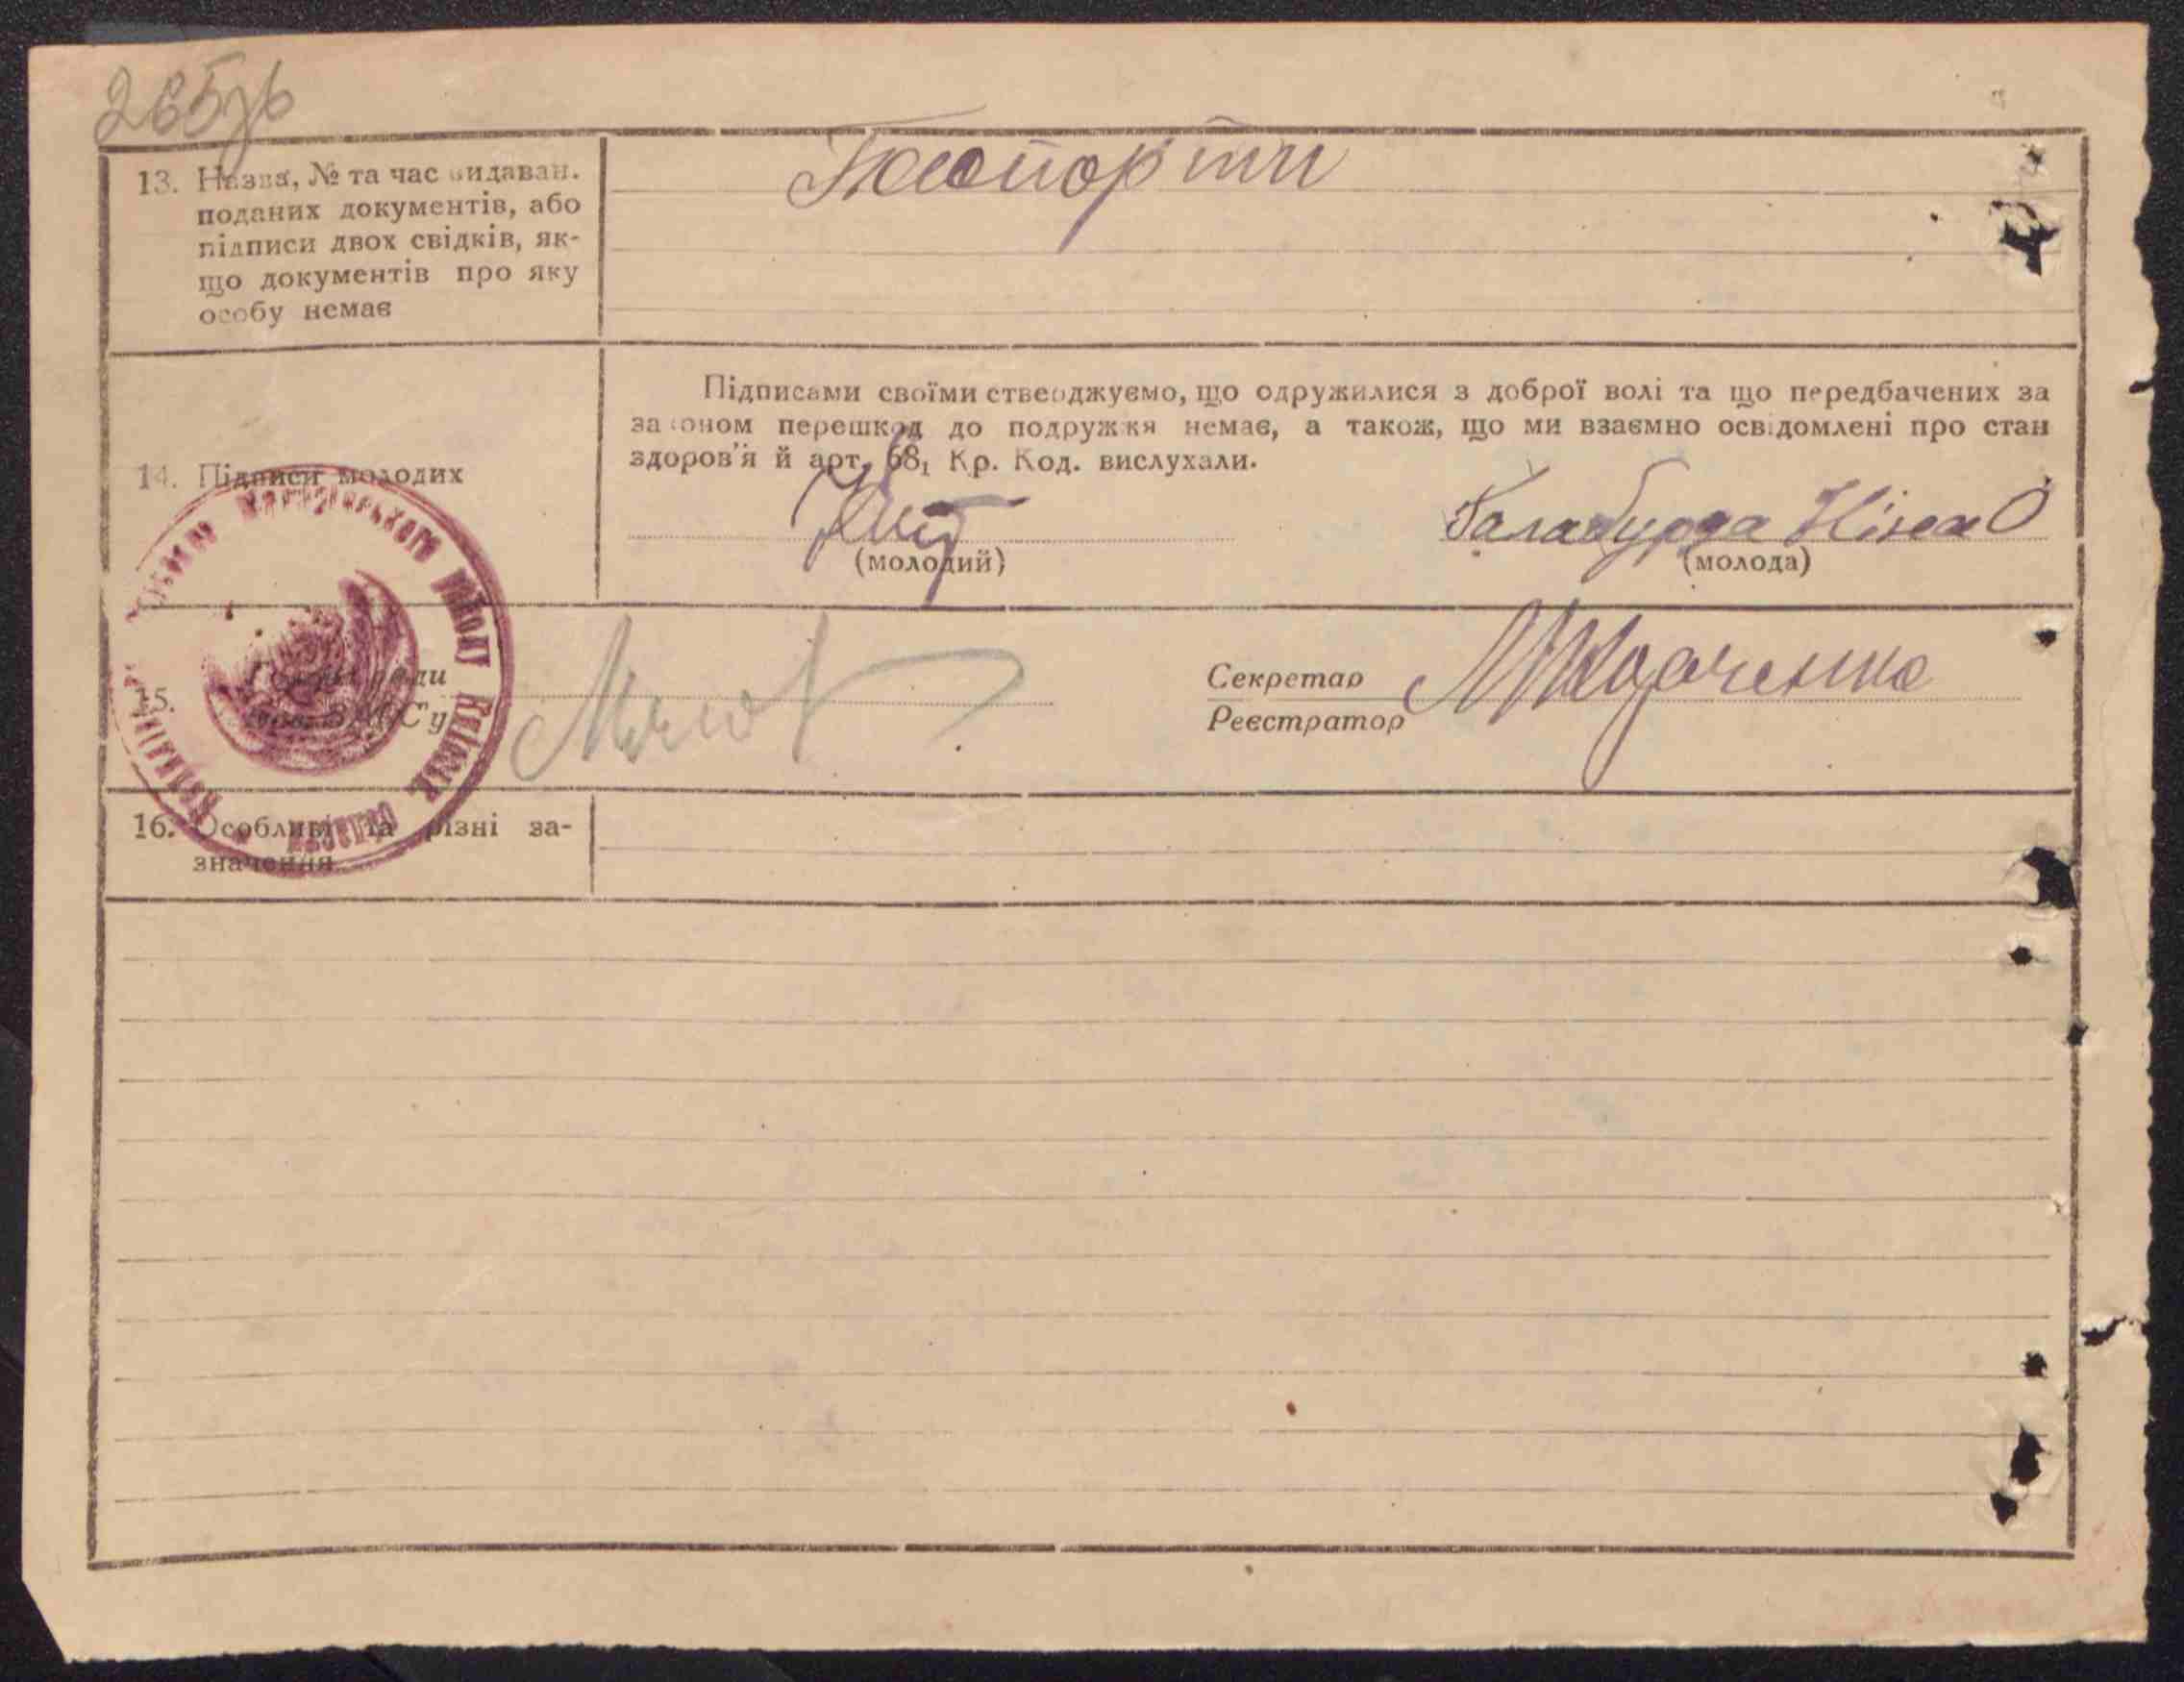 265зв
13. Назва, № та час видаван.
поданих документів, або
підписи двох свідків, як-
що документів про яку
особу немає
Паспорти
Підписами своїми стверджуємо, що одружилися з доброї волі та що передбачених за
законом перешкод до подружжя немає, а також, що ми взаємно освідомлені про стан
здоров'я й арт. 68, Кр. Код. вислухали.
14. Підписи молодих
Галабурда Ніна О
(молодий)
(молода)
15.
Голова ради
Зав. ЗАГС'у
Секретар
Реєстратор
16. Особливі та різні за-
значення